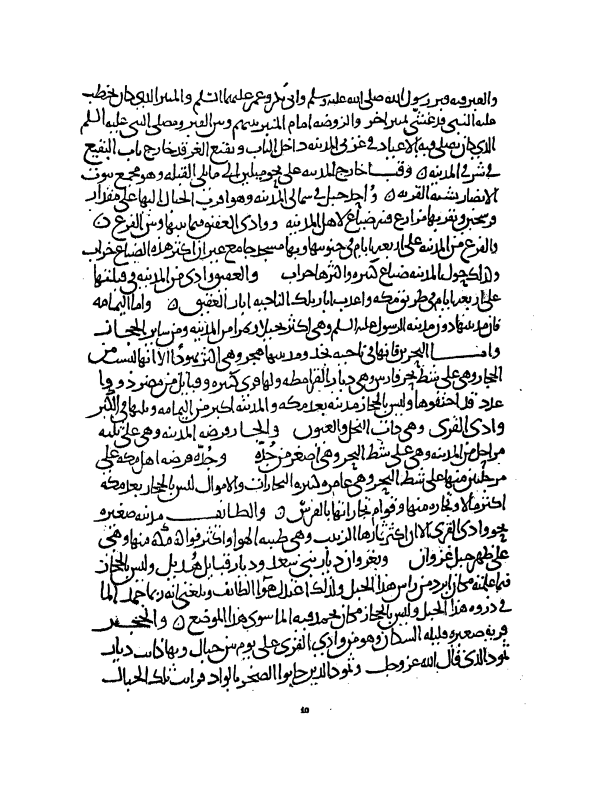 والقبر فيه قبر رسول الله صلى الله عليه وسلم وابي بكر وعمر عليهما السلم والمنبر الذي كان يخطب
عليه النبي قد غشي بمنبر اخر والروضه امام المنبر بينهم وبين القبر ومصلى النبي عليه السلم
الذي كان يصلي فيه الاعياد في غربي المدينه داخل الباب وبقيع الغرقد خارج باب البقيع
في شرقي المدينه ○ وقبا خارج المدينه على نحو ميلين الى ما يلي القبله وهو مجمع بيوت
الانصار يشبه القريه ○ واحد جبل في شمالي المدينه وهو اقرب الجبال اليها على مقدار
فرسخين وبقربها مزارع فيها ضياع لاهل المدينه ووادي العقيق فيما بينها وبين الفرع ○
والفرع من المدينه على اربعه ايام في جنوبيها وبها مسجد جامع غير ان اكثر هذه الضياع خراب
وكذلك حول المدينه ضياع كثيره واكثرها خراب والعقيق وادي من المدينه في قبلتها
على اربعه ايام في طريق مكه واعذب ابار تلك الناحيه ابار العقيق ○ واما اليمامه
فان مدينتها دون مدينه الرسول عليه السلم وهي اكثر نخيلا وتمرا من المدينه ومن ساير الحجاز
وامـــا البحرين فانها في ناحيه نجد ومدينتها هجر وهي اكثر تمورًا الا انها ليست من
الحجاز وهي على شط بحر فارس وهي ديار القرامطه ولها قرى كثيره وقبايل من مضر ذوو
عدد قد احتفوها وليس بالحجاز مدينه بعد مكه والمدينه اكبر من اليمامه ويليها في الكبر
وادي القرى وهي ذات النخل والعيون والجار فرضه المدينه وهي على ثلثه
مراحل من المدينه وهي على شط البحر وهي اصغر من جُدّه وجُدّه فرضه اهل مكه على
مرحلتين منها على شط البحر وهي عامره كثيره التجارات والاموال ليس بالحجاز بعد مكه
اكثر مالا وتجاره منها وقوام تجاراتها بالفرس ○ والطايـف مدينه صغيره
نحو وادي القرى الا ان اكثر ثمارها الزبيب وهي طيبه الهوا واكثر فواكه مكه منها وهي
على ظهر جبل غزوان وبغزوان ديار بني سعد وديار قبايل هُذيل وليس بالحجاز
فيما علمته مكان ابرد من راس هذا الجبل ولذلك اعتدل هوا الطايف وبلغني انه ربما جمد الما
في ذروه هذا الجبل وليس بالحجاز مكان يجمد فيه الما سوى هذا الموضع ○ والحجـر
قريه صغيره قليله السكان وهو من وادي القرى على يوم بين جبال وبها كانت ديار
ثمود الذي قال الله عز وجل وثمود الذين جابوا الصخر بالواد ورايت تلك الجبال